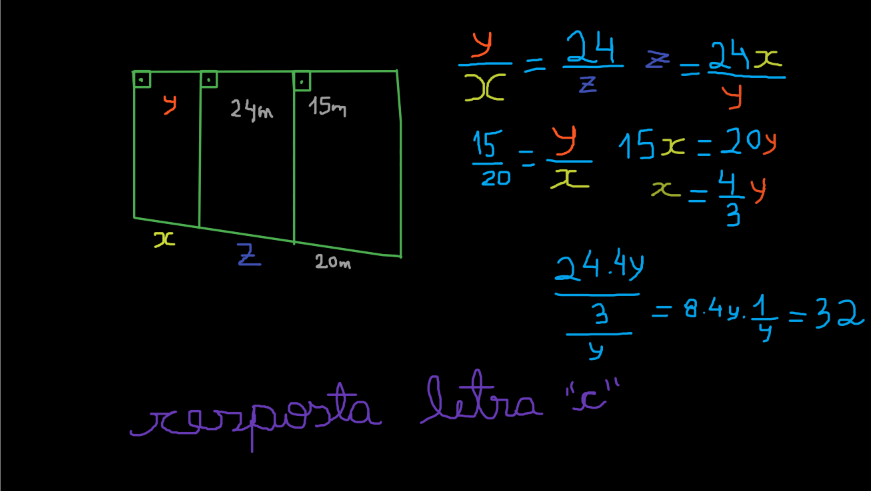 y 24m 15m
x z 20m
y/x = 24/z z = 24x/y
15/20 = y/x 15x = 20y
x = 4/3 y
24.4y/3/y = 8.4y.1/y = 32
resposta letra "c"